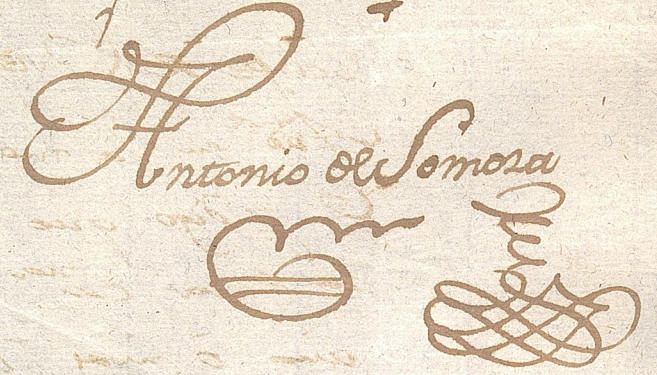 Antonio de Somoza